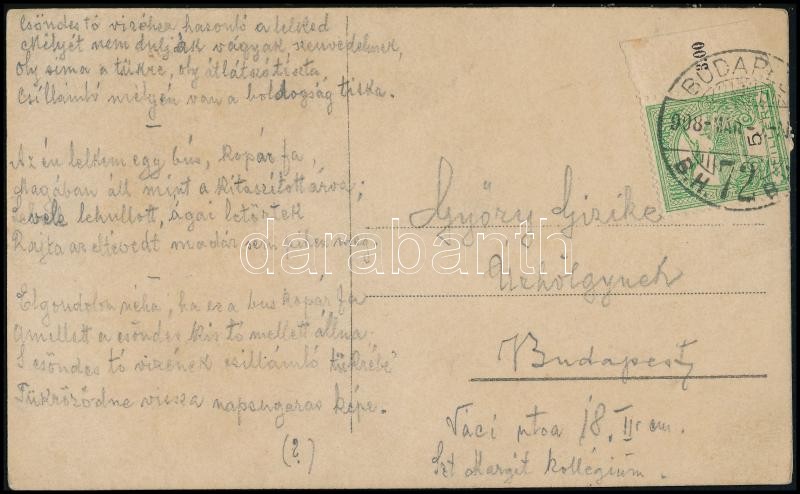 Csöndes tó vizéhez hasonló a lelked
Mélyét nem dulják vágyak szenvedelmek,
Oly sima a tükre, oly átlátszó tiszta
Csillámló mélyén van a boldogság titka.
—
Az én lelkem egy bús, kopár fa,
Magában áll mint a kitaszított árva;
Levele lehullott, ágai letörtek
Rajta az eltévedt madár sem
—
Elgondolom néha, ha ez a bus kopár fa
Amellett a csöndes kis tó mellett állna
S csöndes tó vizének csillámló tükrébe
Tükröződne vissza napsugaras képe.
(?)
3:00
BUDAPEST
908 - MÁR
5
72
B.H.
B
Győry Gizike
Urhölgynek
darabanth
Budapest
Váci utca 18. II em.
Szt Margit kollégium.